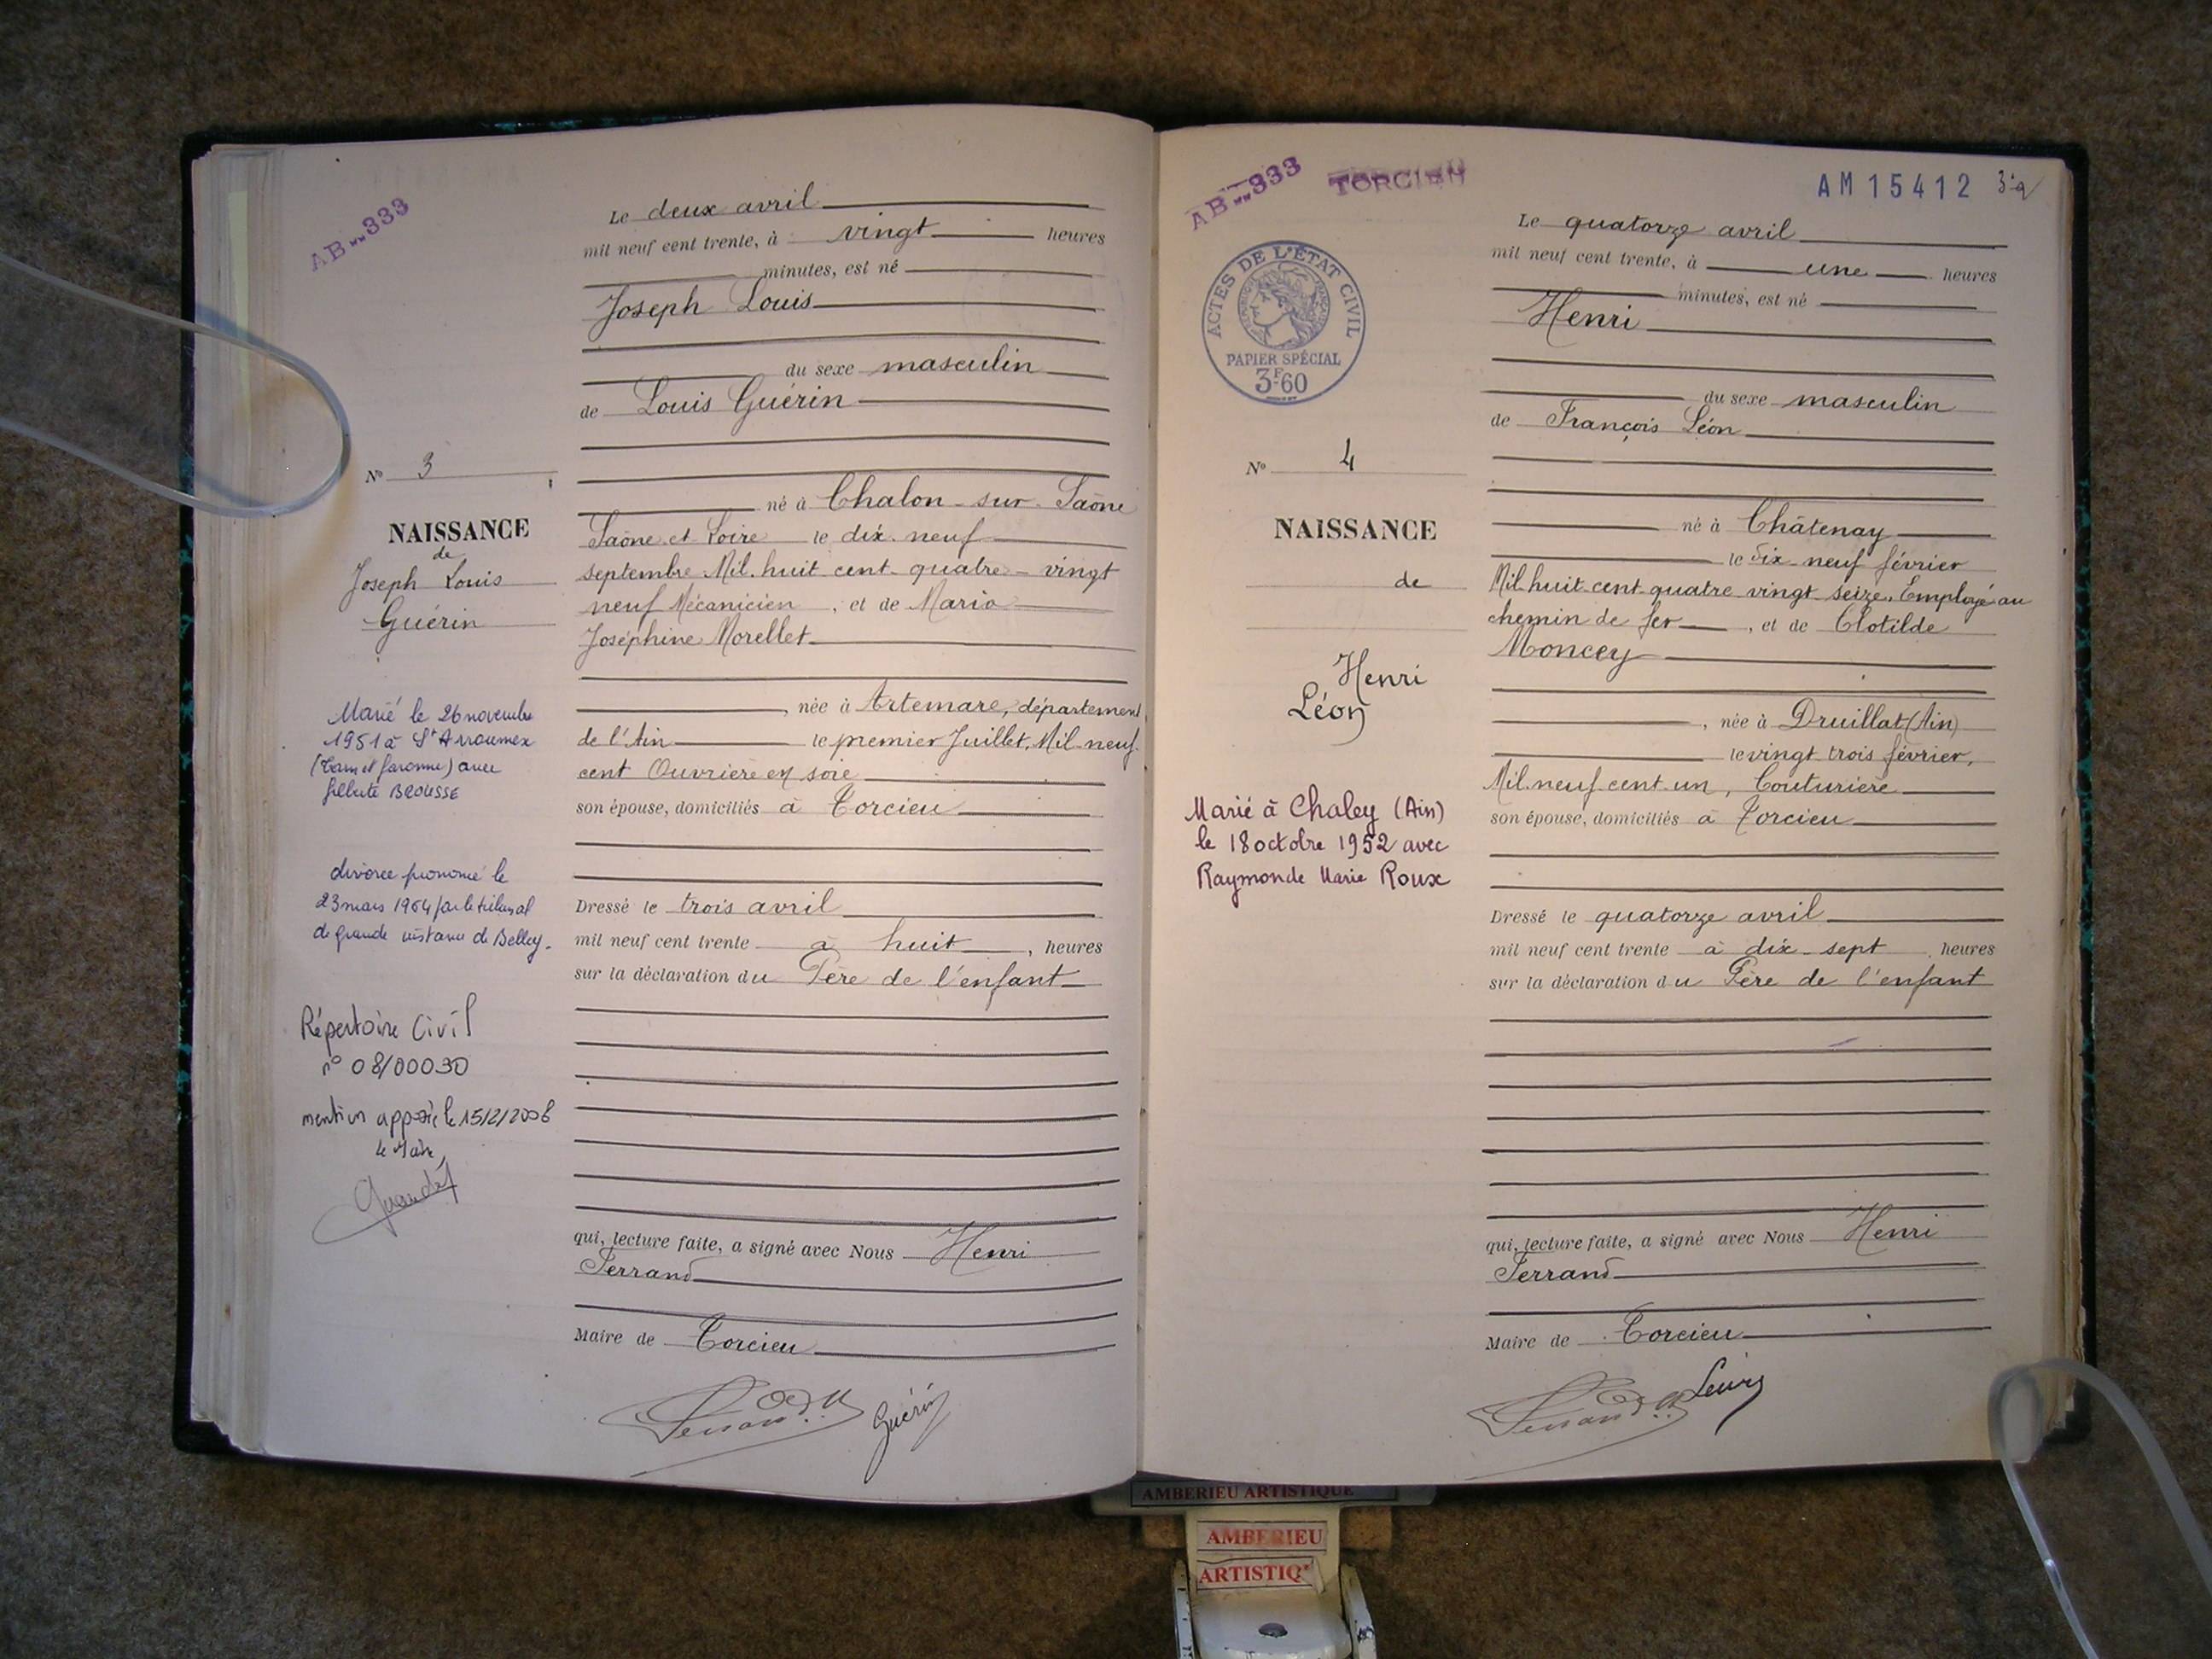 AB 333
Le deux avril
mil neuf cent trente, à vingt heures
minutes, est né
Joseph Louis
du sexe masculin
de Louis Guérin
N° 3
né à Chalon-sur-Saône
Saône et Loire le dix neuf
septembre Mil huit cent quatre-vingt
neuf Mécanicien, et de Maria
Joséphine Morellet
NAISSANCE
de
Joseph Louis
Guérin
née à Artemare, département
de l'Ain le premier Juillet, Mil neuf
cent Ouvrière en soie
son épouse, domiciliés à Torcieu
Marié le 26 novembre
1951 à St Arroumex
(Tarn et Garonne) avec
BROUSSE
divorce prononcé le
23 mars 1964 par le tribunal
de grande instance de Belley.
Dressé le trois avril
mil neuf cent trente à huit, heures
sur la déclaration du Père de l'enfant
Répertoire Civil
n° 08/00030
mention apposée le 15/2/2008
le Maire,
qui, lecture faite, a signé avec Nous Henri
Ferrand
Maire de Torcieu
Guérin
AB 333 TORCIEU
AM 15412
ACTES DE L'ÉTAT CIVIL
PAPIER SPÉCIAL
3F60
Le quatorze avril
mil neuf cent trente, à une heures
minutes, est né
Henri
du sexe masculin
de François Léon
N° 4
né à Châtenay
le dix neuf février
Mil huit cent quatre vingt seize, Employé au
chemin de fer, et de Clotilde
Moncey
NAISSANCE
de
Henri
Léon
née à Druillat (Ain)
le vingt trois février,
Mil neuf cent un, Couturière
son épouse, domiciliés à Torcieu
Marié à Chaley (Ain)
le 18 octobre 1952 avec
Raymonde Marie Roux
Dressé le quatorze avril
mil neuf cent trente à dix-sept heures
sur la déclaration du Père de l'enfant
qui, lecture faite, a signé avec Nous Henri
Ferrand
Maire de Torcieu
AMBERIEU ARTISTIQUE
AMBERIEU
ARTISTIQ